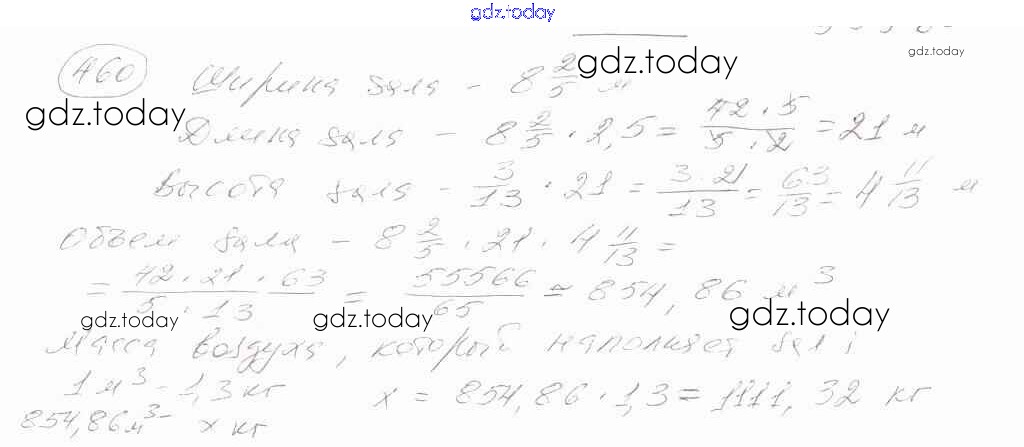 gdz.today
460 Ширина зала - 8 2/5 м
gdz.today
gdz.today
gdz.today
Длина зала - 8 2/5 · 2,5 = 42 · 5 / 5 · 2 = 21 м
Высота зала - 3/13 · 21 = 3 · 21 / 13 = 63/13 = 4 11/13 м
Объем зала - 8 2/5 · 21 · 4 11/13 =
= 42 · 21 · 63 / 5 · 13 = 55566 / 65 = 854,86 м³
gdz.today gdz.today gdz.today
Масса воздуха, который наполняет зал:
1 м³ - 1,3 кг
854,86 м³ - x кг
x = 854,86 · 1,3 = 1111,32 кг